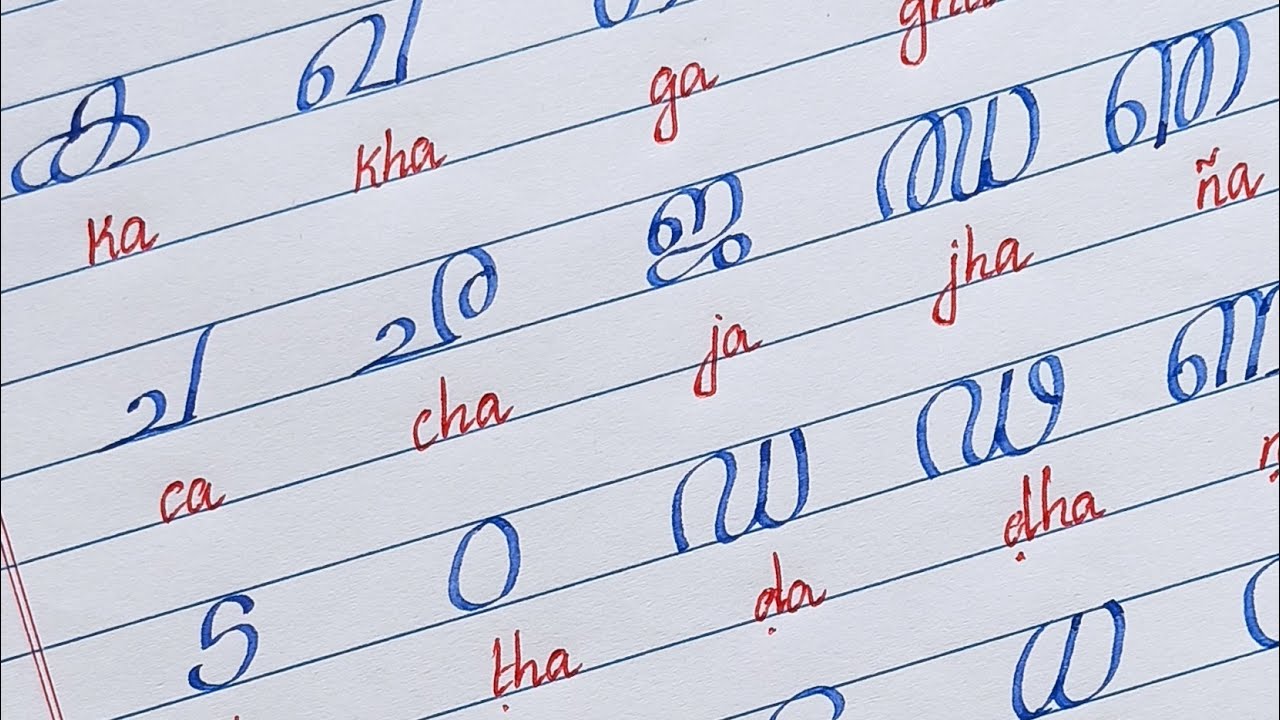 ക ഖ
ka kha ga
ച ഛ ജ ഝ ഞ
ca cha ja jha ña
ട ഠ ഡ ഢ ണ
ṭha ḍa ḍha
ധ